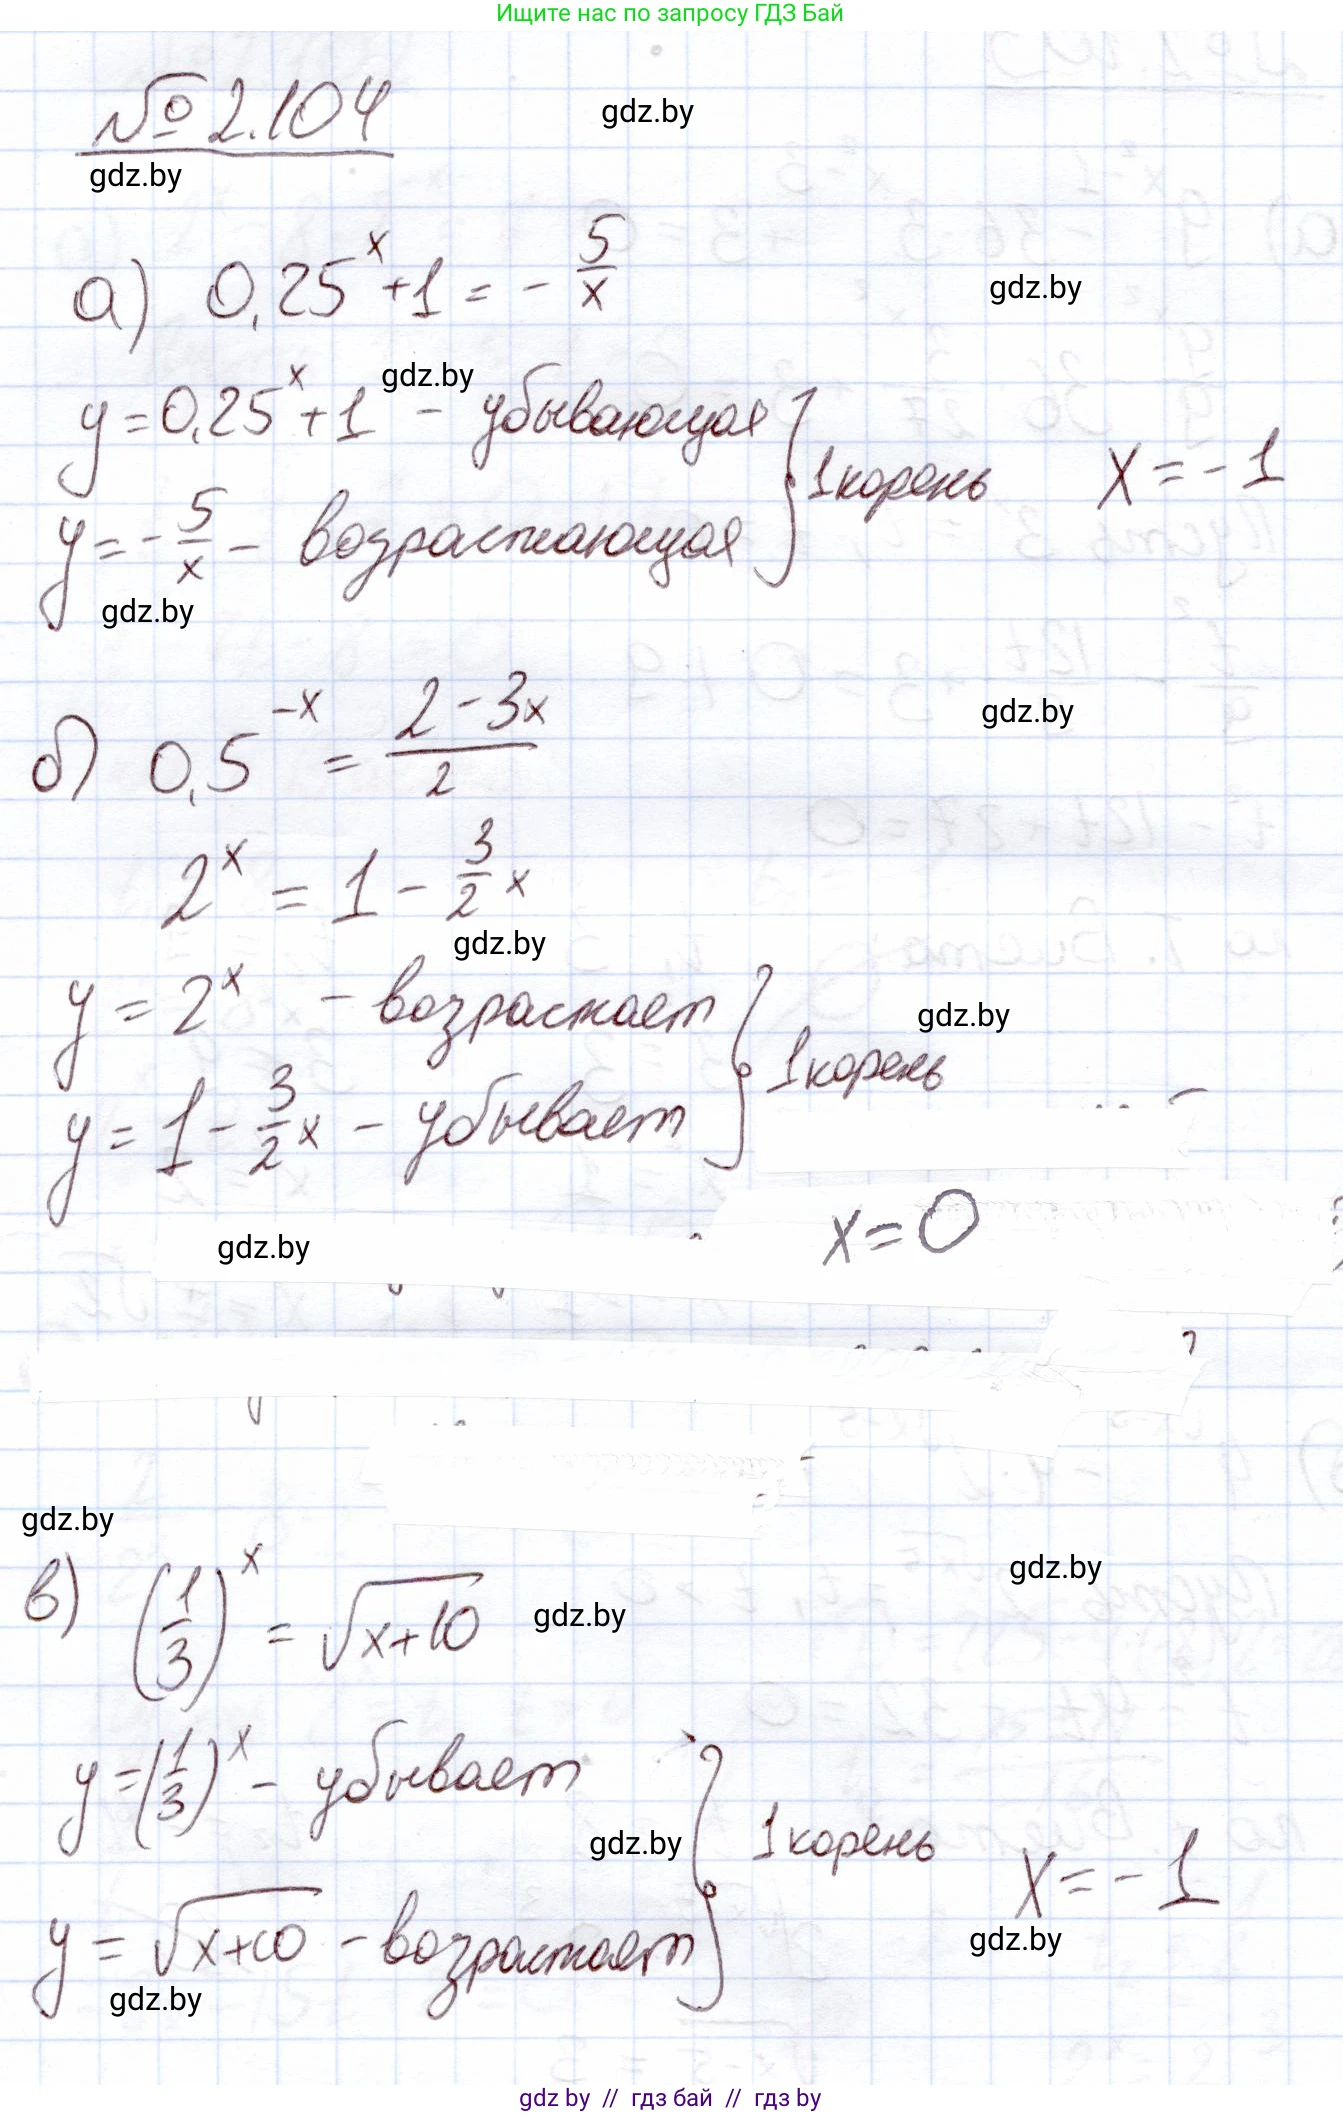 Ищите нас по запросу ГДЗ Бай
№ 2.104
gdz.by
gdz.by
а) 0,25^x + 1 = - 5/x
gdz.by
gdz.by
y = 0,25^x + 1 - убывающая
y = - 5/x - возрастающая
} 1 корень x = -1
gdz.by
б) 0,5^(-x) = (2 - 3x)/2
gdz.by
2^x = 1 - 3/2 x
gdz.by
y = 2^x - возрастает
gdz.by
y = 1 - 3/2 x - убывает
} 1 корень
x = 0
gdz.by
gdz.by
gdz.by
в) (1/3)^x = √(x+10)
gdz.by
y = (1/3)^x - убывает
gdz.by
} 1 корень x = -1
y = √(x+10) - возрастает
gdz.by
gdz.by
gdz by // гдз бай // гдз by